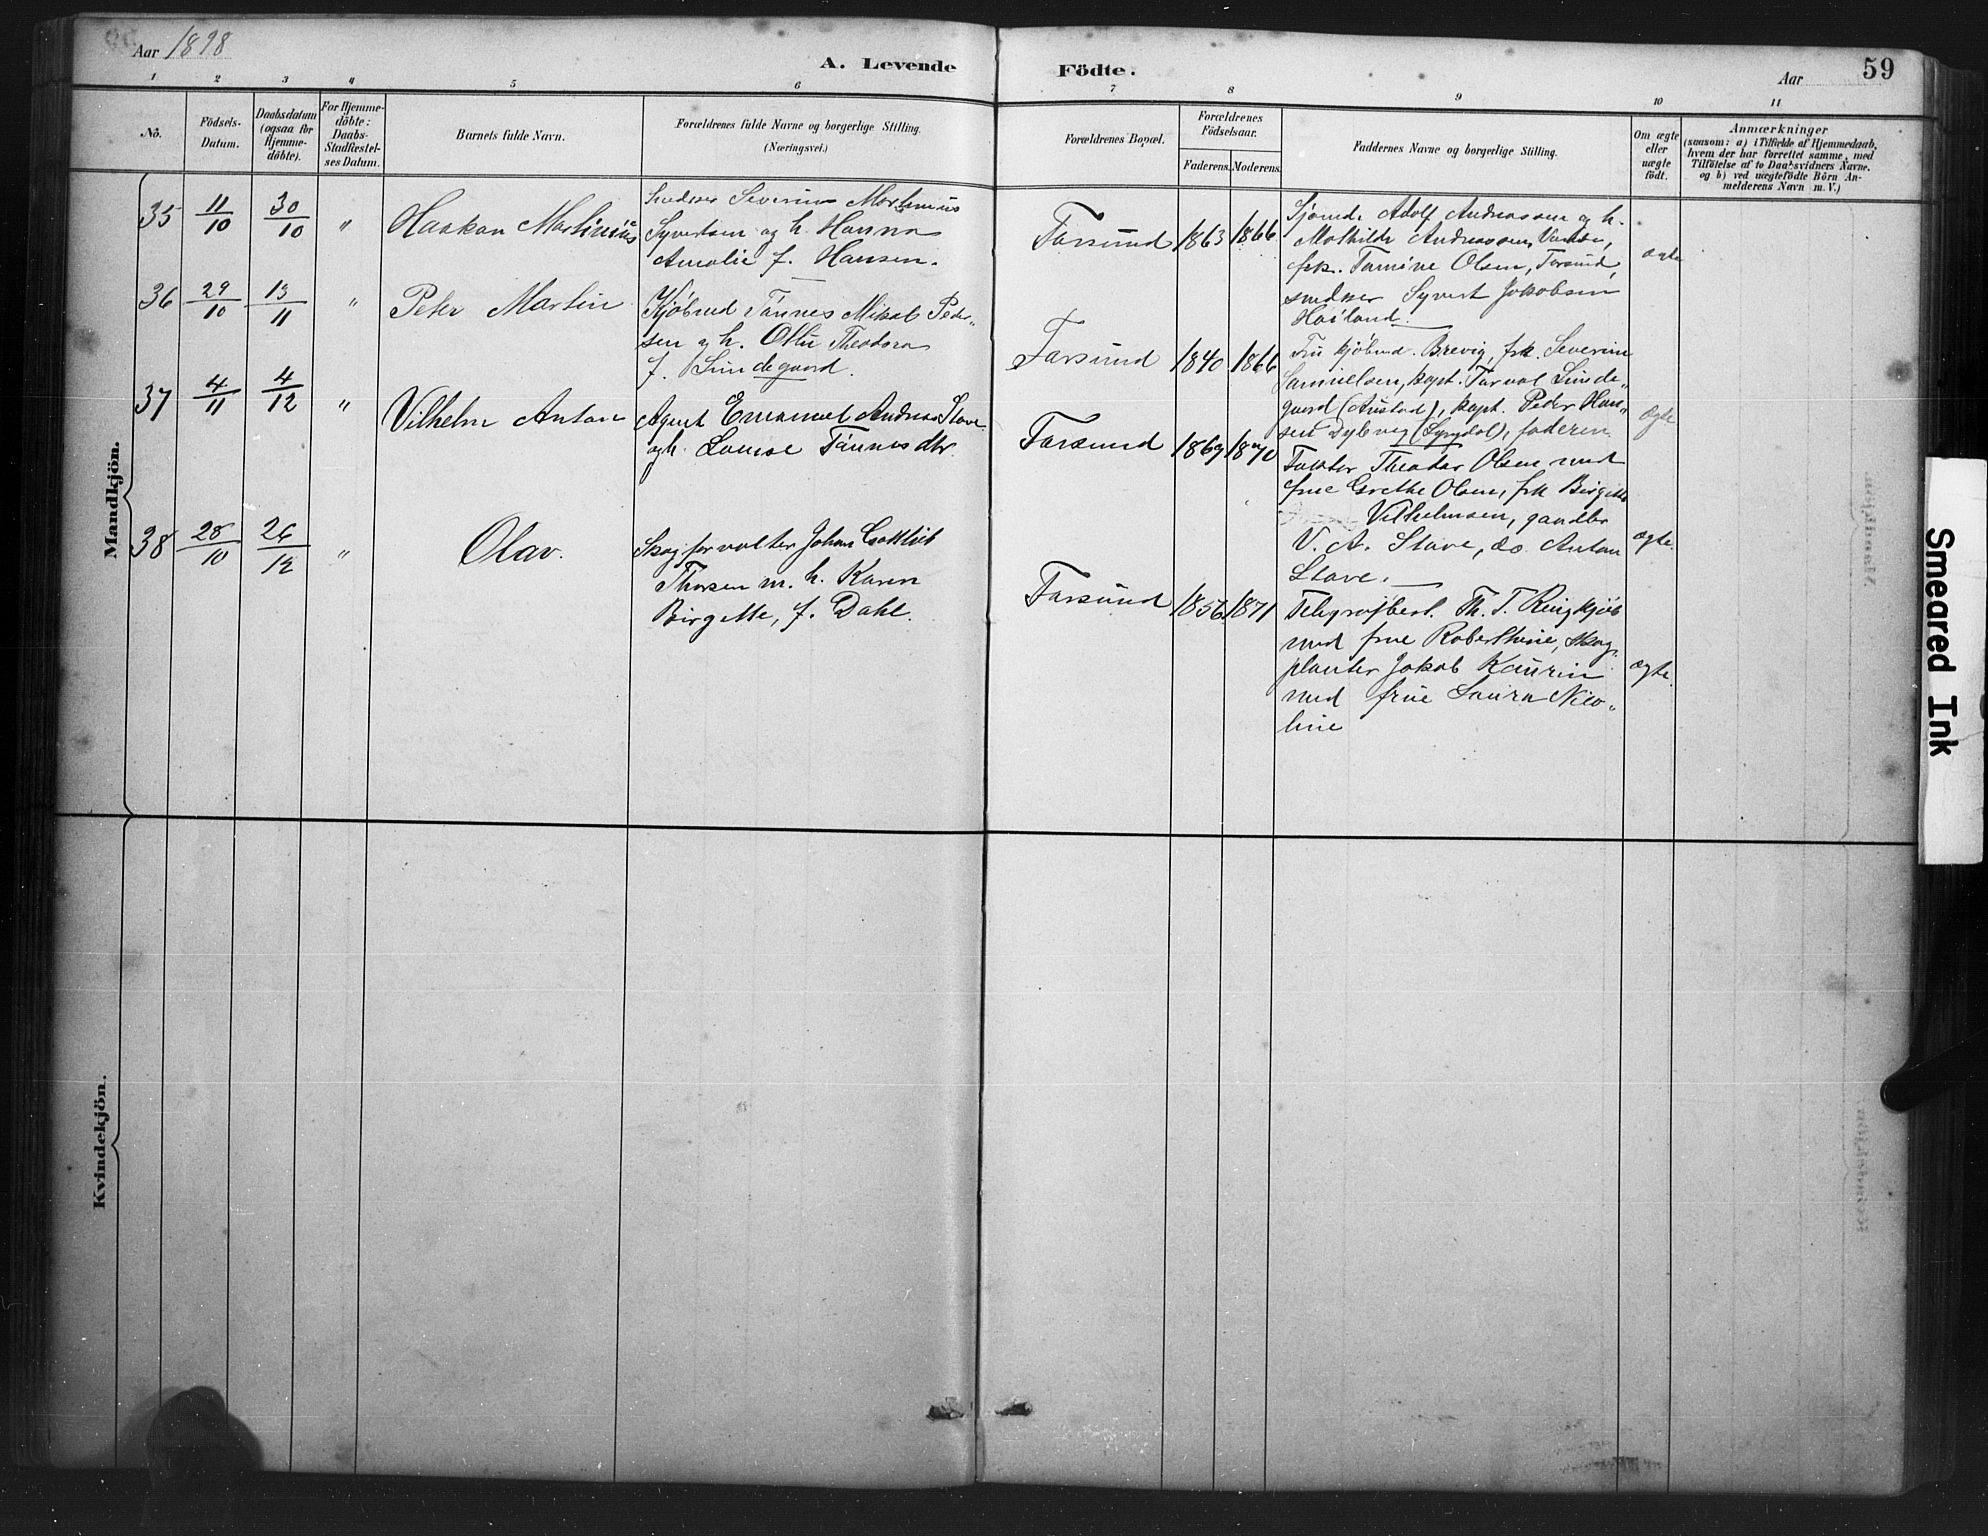 Aar 1898
A. Levende
Födte.
Aar
59
1 2 3 4 5 6 7 8 9 10 11
No.
Födsels-
Datum.
Daabsdatum
(ogsaa for
Hjemme-
döbte).
For Hjemme-
döbte:
Daabs-
Stadfæstel-
ses Datum.
Barnets fulde Navn.
Forældrenes fulde Navne og borgerlige Stilling.
(Næringsvei.)
Forældrenes Bopæl.
Forældrenes
Födselsaar.
Faderens. Moderens.
Faddernes Navne og borgerlige Stilling.
Om ægte
eller
uægte
födt.
Anmærkninger
(saasom: a) i Tilfælde af Hjemmedaab,
hvem der har forrettet samme, med
Tilföielse af to Daabsvidners Navne.
og b) ved uægtefödte Börn An-
melderens Navn m. V.)
Mandkjön.
35 11/10 30/10 " Haakon Martinius
Severin Martinius
Syvertsen og h. Hanna
Amalie f. Hansen.
Farsund 1863 1866
Adolf Andreassen og h.
Mathilde Andreassen, Vanse,
frk. Tomine Olsen, Farsund,
Syvert Jakobsen
Hauland.
ægte
36 29/10 13/11 " Peter Martin
Kjøbmd Tönnes Mikal Peder-
sen og h. Theodora
f. Lundegaard.
Farsund 1840 1866
Fru kjøbmd. Brevig, frk. Severine
Samuelsen, kapt. Torval Lunde-
gaard (Austad), kapt. Peder Han-
sen Dybvig (Lyngdal), faderen
ægte
37 4/11 4/12 " Vilhelm Anton
Agent Emanuel Andreas Stave
og h. Louise Tönnesdtr.
Farsund 1869 1870
Theodor Olsen med
frue Grethe Olsen, frk Birgitte
Vilhelmsen, gaardbr
V. A. Stave, do Anton
Stave.
ægte.
38 28/10 26/12 " Olav.
Skogforvalter Johan Gottlieb
Thorsen m. h. Karen
Birgette, f. Dahl.
Farsund 1856 1871
Telegrafbest. Th. T. Ringkjöb
med frue Roberthine, skog-
planter Jakob Kaurin
med frue Laura Nico-
line
ægte.
Kvindekjön.
Smeared Ink